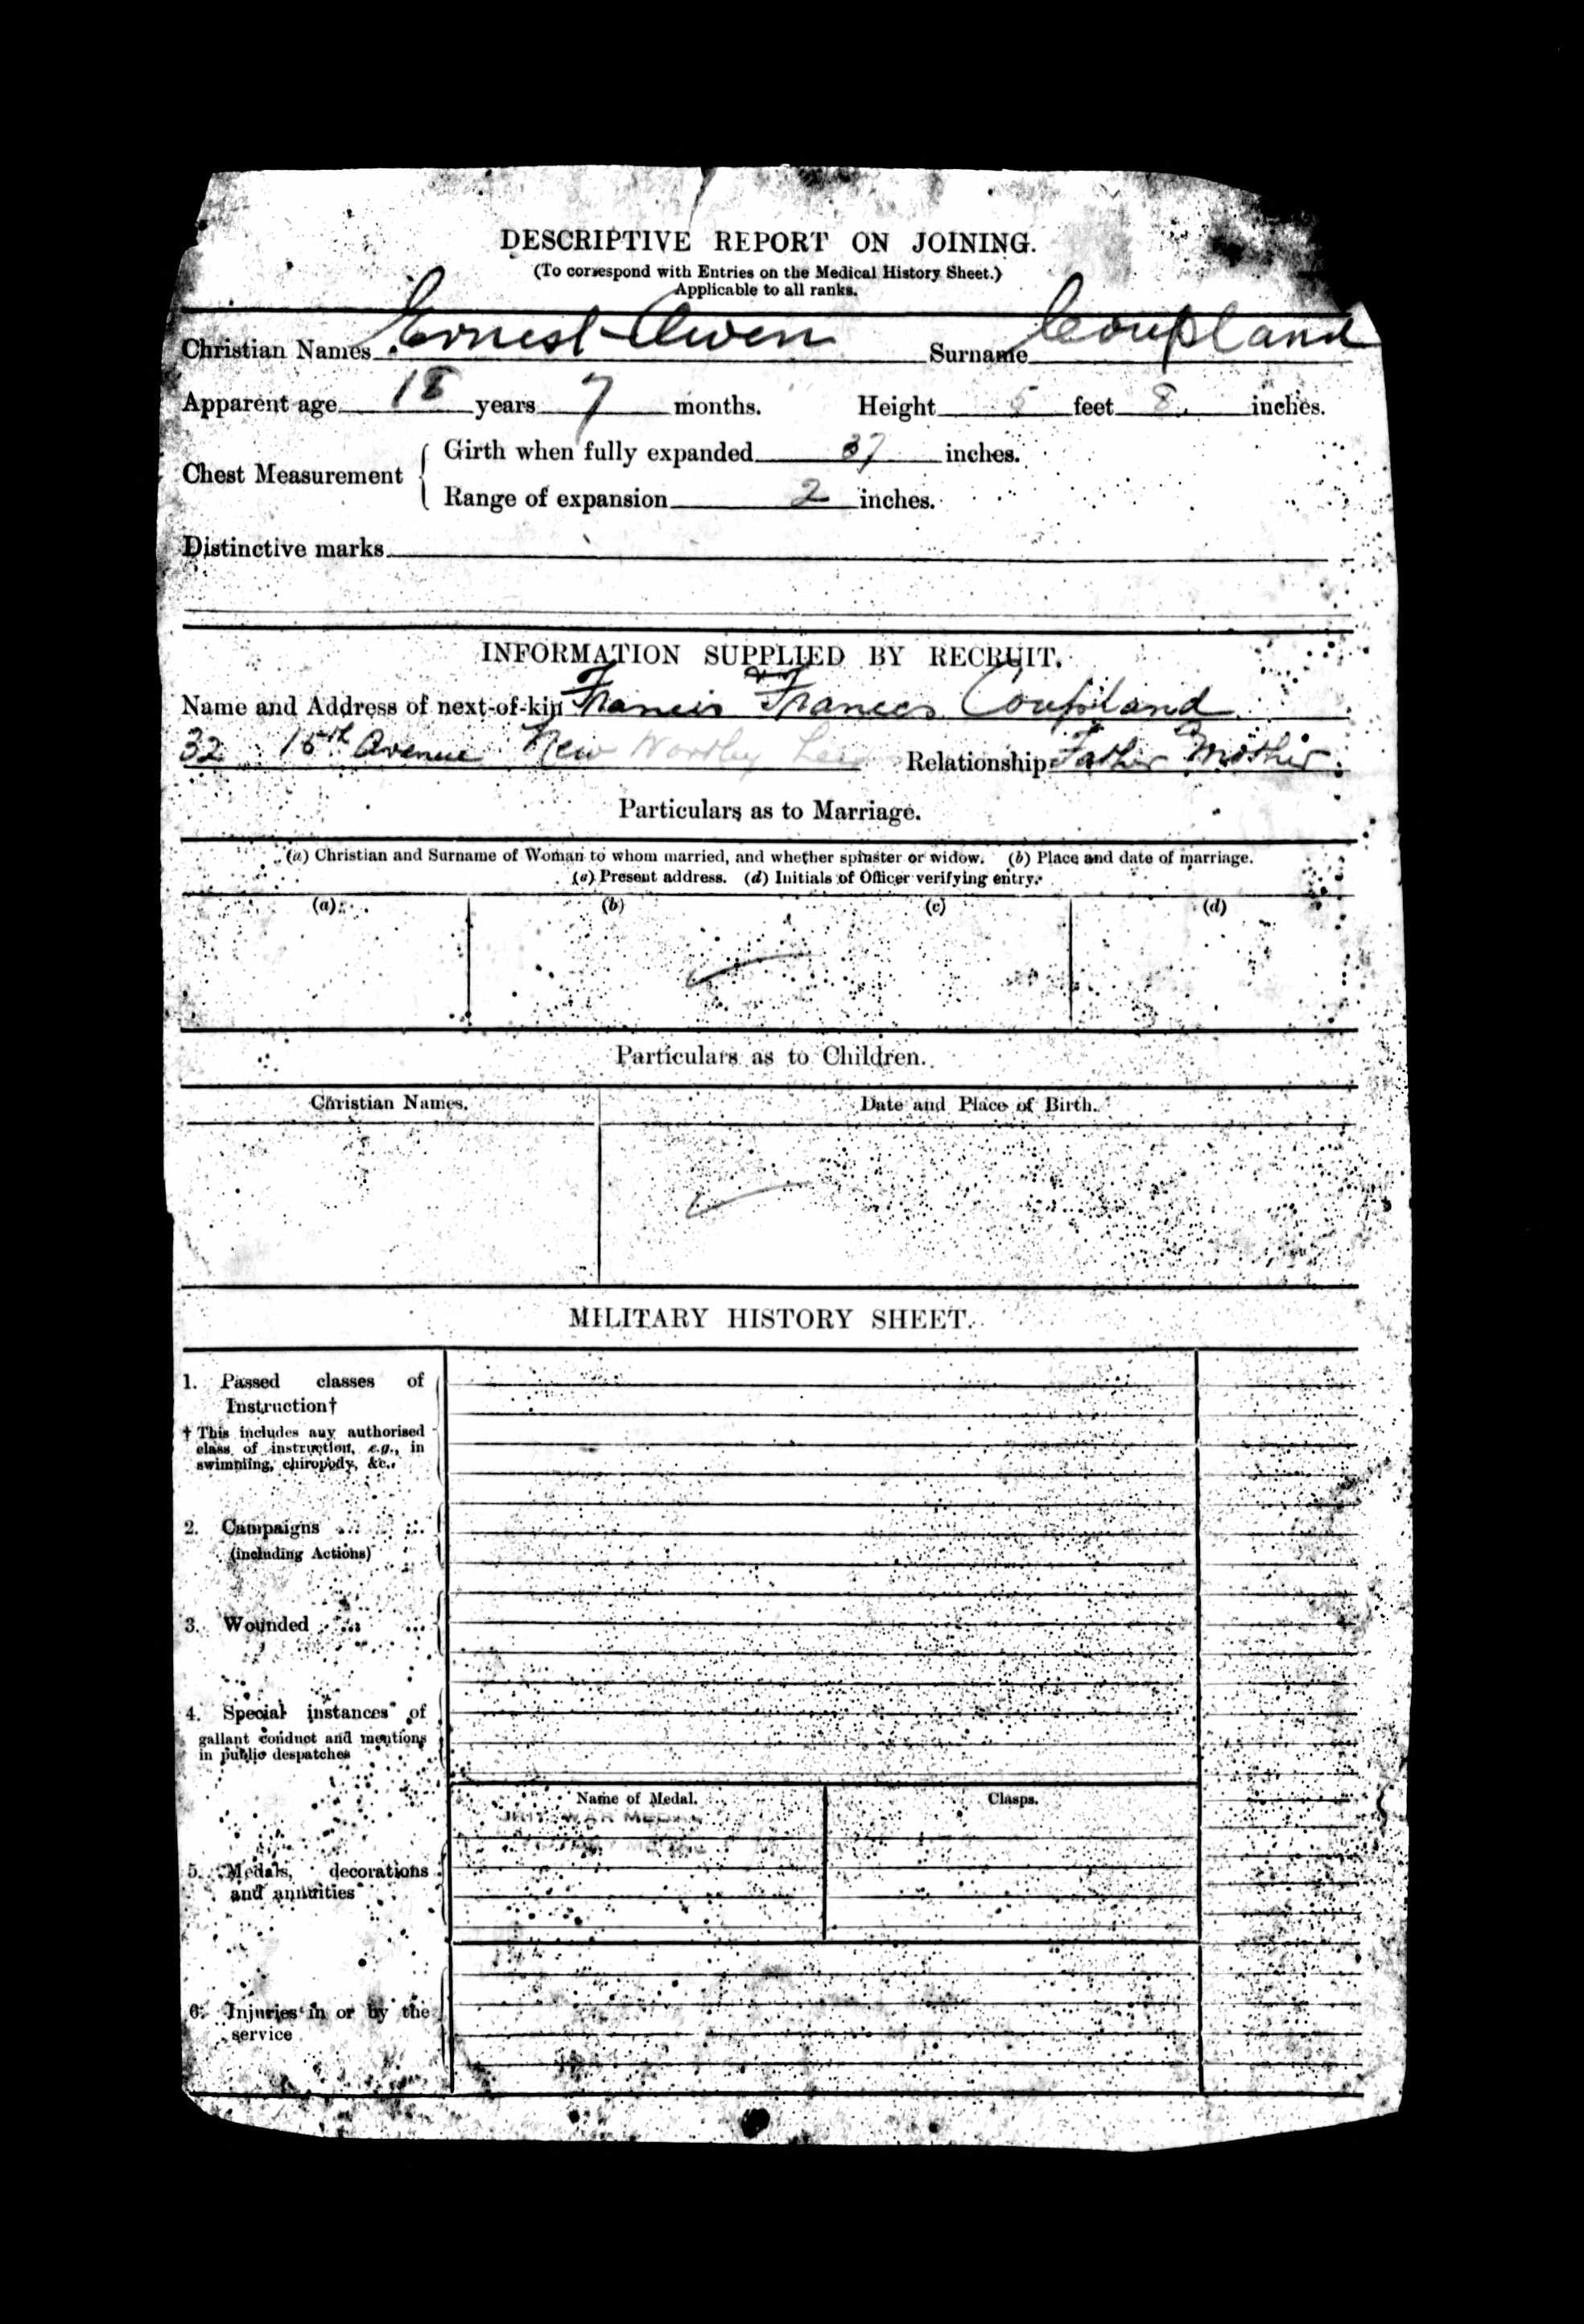 DESCRIPTIVE REPORT ON JOINING.
(To correspond with Entries on the Medical History Sheet.)
Applicable to all ranks.
Christian Names Ernest Owen Surname Coupland
Apparent age 18 years 7 months. Height 5 feet 8 inches.
Chest Measurement
Girth when fully expanded 37 inches.
Range of expansion 2 inches.
Distinctive marks
INFORMATION SUPPLIED BY RECRUIT.
Name and Address of next-of-kin Francis & Frances Coupland
32 15th Avenue New Wortley Relationship Father Mother
Particulars as to Marriage.
(a) Christian and Surname of Woman to whom married, and whether spinster or widow. (b) Place and date of marriage.
(c) Present address. (d) Initials of Officer verifying entry.
(a) (b) (c) (d)
Particulars as to Children.
Christian Names. Date and Place of Birth.
MILITARY HISTORY SHEET.
1. Passed classes of
Instruction†
† This includes any authorised
class of instruction, e.g., in
swimming, chiropody, &c.
2. Campaigns ... ...
(including Actions)
3. Wounded ... ...
4. Special instances of
gallant conduct and mentions
in public despatches
Name of Medal. Clasps.
WAR MEDAL
5. Medals, decorations
and annuities
6. Injuries in or by the
service